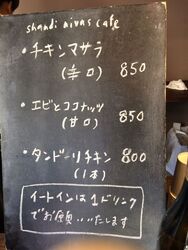 shandi nivas cafe
・チキンマサラ
(辛口) 850
・エビとココナッツ
(甘口) 850
・タンドーリチキン 800
(1本)
イートインは1ドリンク
でお願いいたします